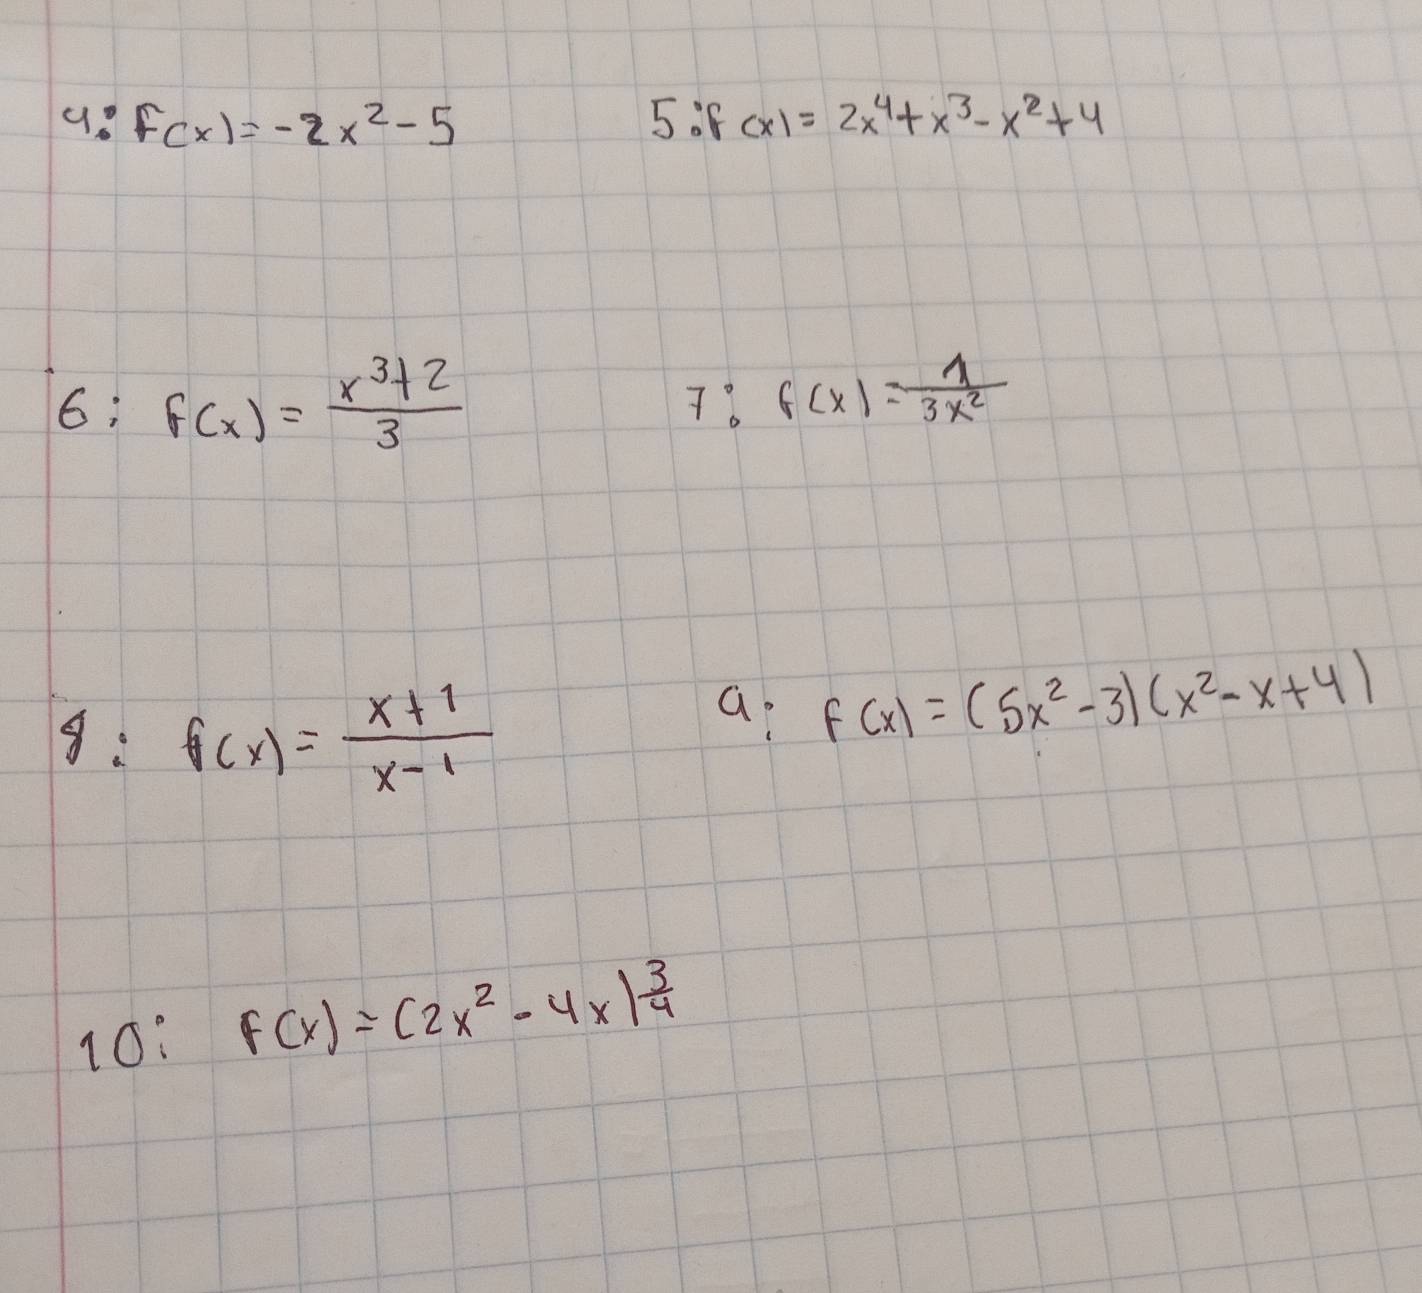 4: f(x) = -2x² - 5
5: f(x) = 2x⁴ + x³ - x² + 4
6: f(x) = (x³+2)/3
7: f(x) = 1/(3x²)
8: f(x) = (x+1)/(x-1)
9: f(x) = (5x² - 3)(x² - x + 4)
10: f(x) = (2x² - 4x)^(3/4)